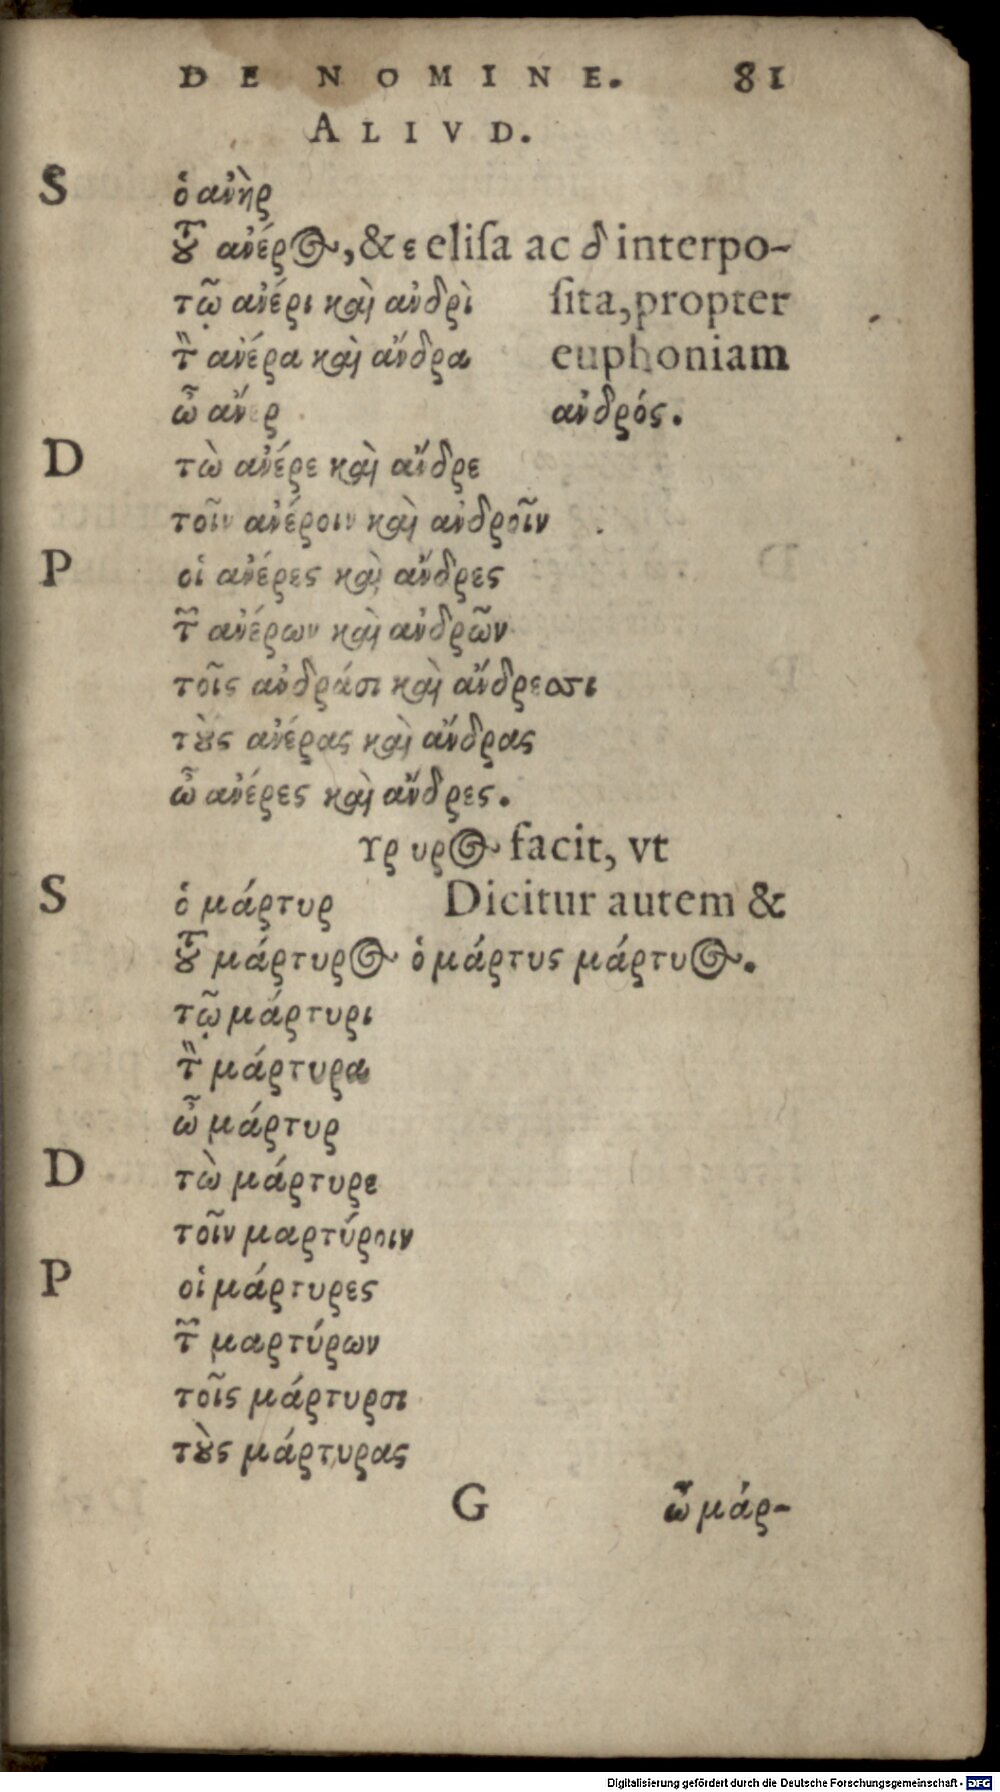 DE NOMINE. 81
ALIVD.
S ὁ ἀνὴρ
τȣ͂ ἀνέρος, & ε eliſa ac δ interpo-
τῷ ἀνέρι καὶ ἀνδρὶ ſita, propter
τ̀ ἀνέρα καὶ ἄνδρα euphoniam
ὦ ἄνερ ἀνδρός.
D τὼ ἀνέρε καὶ ἄνδρε
τοῖν ἀνέροιν καὶ ἀνδροῖν
P οἱ ἀνέρες καὶ ἄνδρες
τ͂ ἀνέρων καὶ ἀνδρῶν
τοῖς ἀνδράσι καὶ ἄνδρεσσι
τȣ̀ς ἀνέρας καὶ ἄνδρας
ὦ ἀνέρες καὶ ἄνδρες.
Υρ υρος facit, vt
S ὁ μάρτυρ Dicitur autem &
τȣ͂ μάρτυρος ὁ μάρτυς μάρτυος.
τῷ μάρτυρι
τ̀ μάρτυρα
ὦ μάρτυρ
D τὼ μάρτυρε
τοῖν μαρτύροιν
P οἱ μάρτυρες
τ͂ μαρτύρων
τοῖς μάρτυρσι
τȣ̀ς μάρτυρας
G ὦ μάρ-
Digitalisierung gefördert durch die Deutsche Forschungsgemeinschaft - DFG